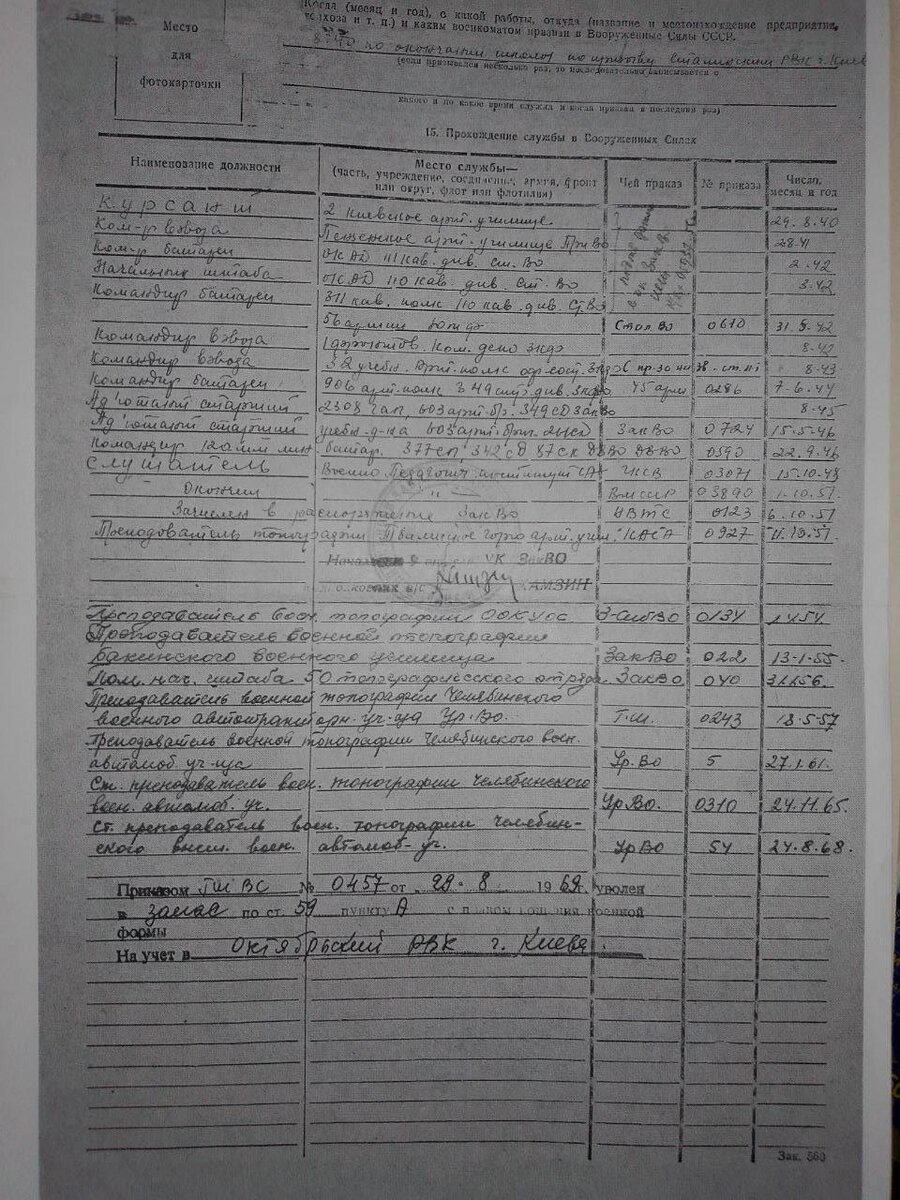 Место
для
фотокарточки
Когда (месяц и год), с какой работы, откуда (название и местонахождение предприятия,
колхоза и т. п.) и каким военкоматом призван в Вооруженные Силы СССР.
по окончании школы по призыву Сталинским РВК г. Киев
(если призывался несколько раз, то последовательно записывается с
какого и по какое время служил и когда призван в последний раз)
15. Прохождение службы в Вооруженных Силах
Наименование должности
Место службы—
(часть, учреждение, соединение, армия, фронт
или округ, флот или флотилия)
Чей приказ
№ приказа
Число,
месяц и год
Курсант 2 Киевское арт. училище 29.8.40
Ком-р взвода арт. училище
Ком-р батареи ОКАД 111 кав. див. Ст. ВО 2.42
Начальник штаба ОКАД 110 кав. див. Ст. ВО 3.42
Командир батареи 311 кав. полк 110 кав. див. Ст. ВО
56 армии 0610
Командир взвода 8.42
Командир взвода 32 учебн. арт. полк 8.43
Командир батареи 906 арт. полк 349 стр. див. 45 арм 0286 7-6.44
Ад'ютант старший 349 СД ЗакВО 8.45
Ад'ютант старший учебн. д-на ЗакВО 0724 15.5.46
Командир батар. 377 СП 342 СД 87 СК ДВВО ДВВО 0390 22.9.46
Слушатель Военно Педагогич. институт СА 03071 15.10.48
Окончил —"— 03890 1-10.51
Зачислен в распоряжение ЗакВО 0123 6.10.51
Преподователь топографии Тбилисское горно арт. учил. КАСА 0927
УК ЗакВО
КАМЗИН
Преподаватель воен. топографии ООКУОС З-СибВО 0134 1.4.54.
Преподаватель военной топографии
Бакинского военного училища ЗакВО 022 13-1-55.
Пом. нач. штаба 50 топографического отряда ЗакВО 040
Преподаватель военной топографии Челябинского
военного автотракторн. уч-ща Ур. ВО. 0243 18.5.57
Преподаватель военной топографии Челябинского воен.
автомоб. уч-ща Ур. ВО 5 27.1.61.
Ст. преподаватель воен. топографии Челябинского
воен. автомоб. уч. Ур. ВО. 0310 24.11.65.
Ст. преподаватель воен. топографии Челябин-
ского высш. воен. автомоб. уч. Ур ВО 54 24.8.68.
Приказом № 0457 от 29. 8 1969 г. уволен
в запас по ст. 59 пункту А с правом ношения военной
формы
На учет в Октябрьский РВК г. Киева.
Зак. 560